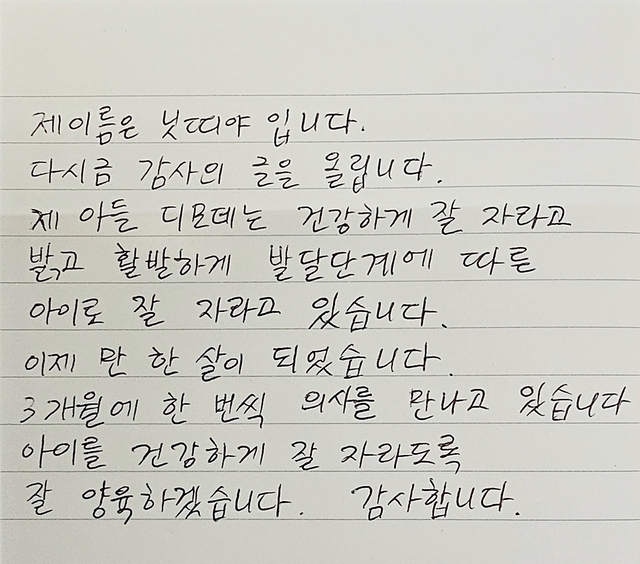 제이름은 닛띠야 입니다.
다시금 감사의 글을 올립니다.
제 아들 디모데는 건강하게 잘 자라고
밝고 활발하게 발달단계에 따른
아이로 잘 자라고 있습니다.
이제 만 한 살이 되었습니다.
3개월에 한 번씩 의사를 만나고 있습니다
아이를 건강하게 잘 자라도록
잘 양육하겠습니다. 감사합니다.